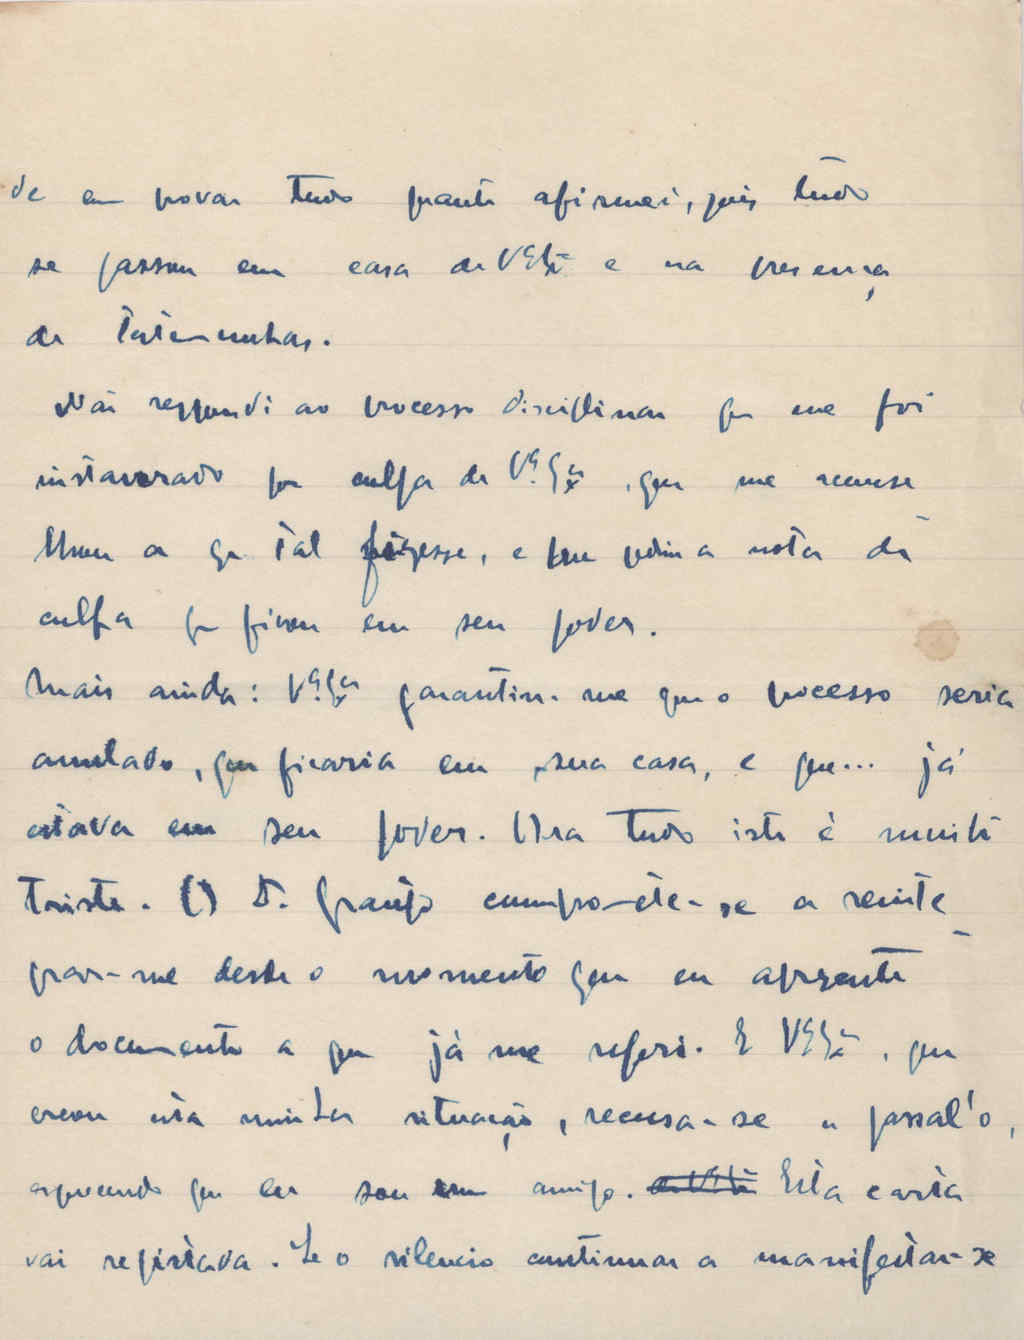 de em provar tudo quanto afirmei, pois tudo
se passou em casa de V. Exª e na presença
de testemunhas.
Não respondi ao processo disciplinar que me foi
instaurado por culpa de V. Exª, que me aconse
lhou a que tal fizesse, e me pediu a nota da
culpa que ficou em seu poder.
Mais ainda: V. Exª garantiu-me que o processo seria
anulado, que ficaria em sua casa, e que... já
estava em seu poder. Ora tudo isto é muito
triste. O D. Granjo compromete-se a reinte
grar-me desde o momento que eu apresente
o documento a que já me referi. E V. Exª, que
creou esta minha situação, recusa-se a passal'o,
esquecendo que eu sou um amigo. Esta carta
vai registada. Se o silencio continuar a manifestar-se